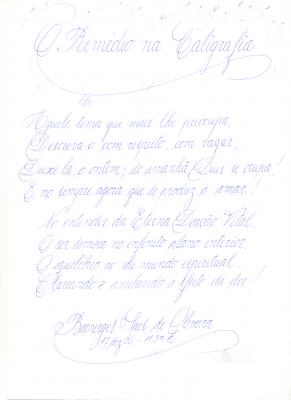 O Remédio na Caligrafia
Aquele tema que mais lhe preocupa,
Descreva-o com respeito, com vagar,
Deixe lá, o ontem; do amanhã Deus se ocupa!
É no sempre agora que se produz o amar!
No entender da Eterna Doação Vital,
O ser semeia no infinito plano interior
O equilíbrio no seu mundo espiritual,
Clareando e anulando o fato da dor!
de Oliveira